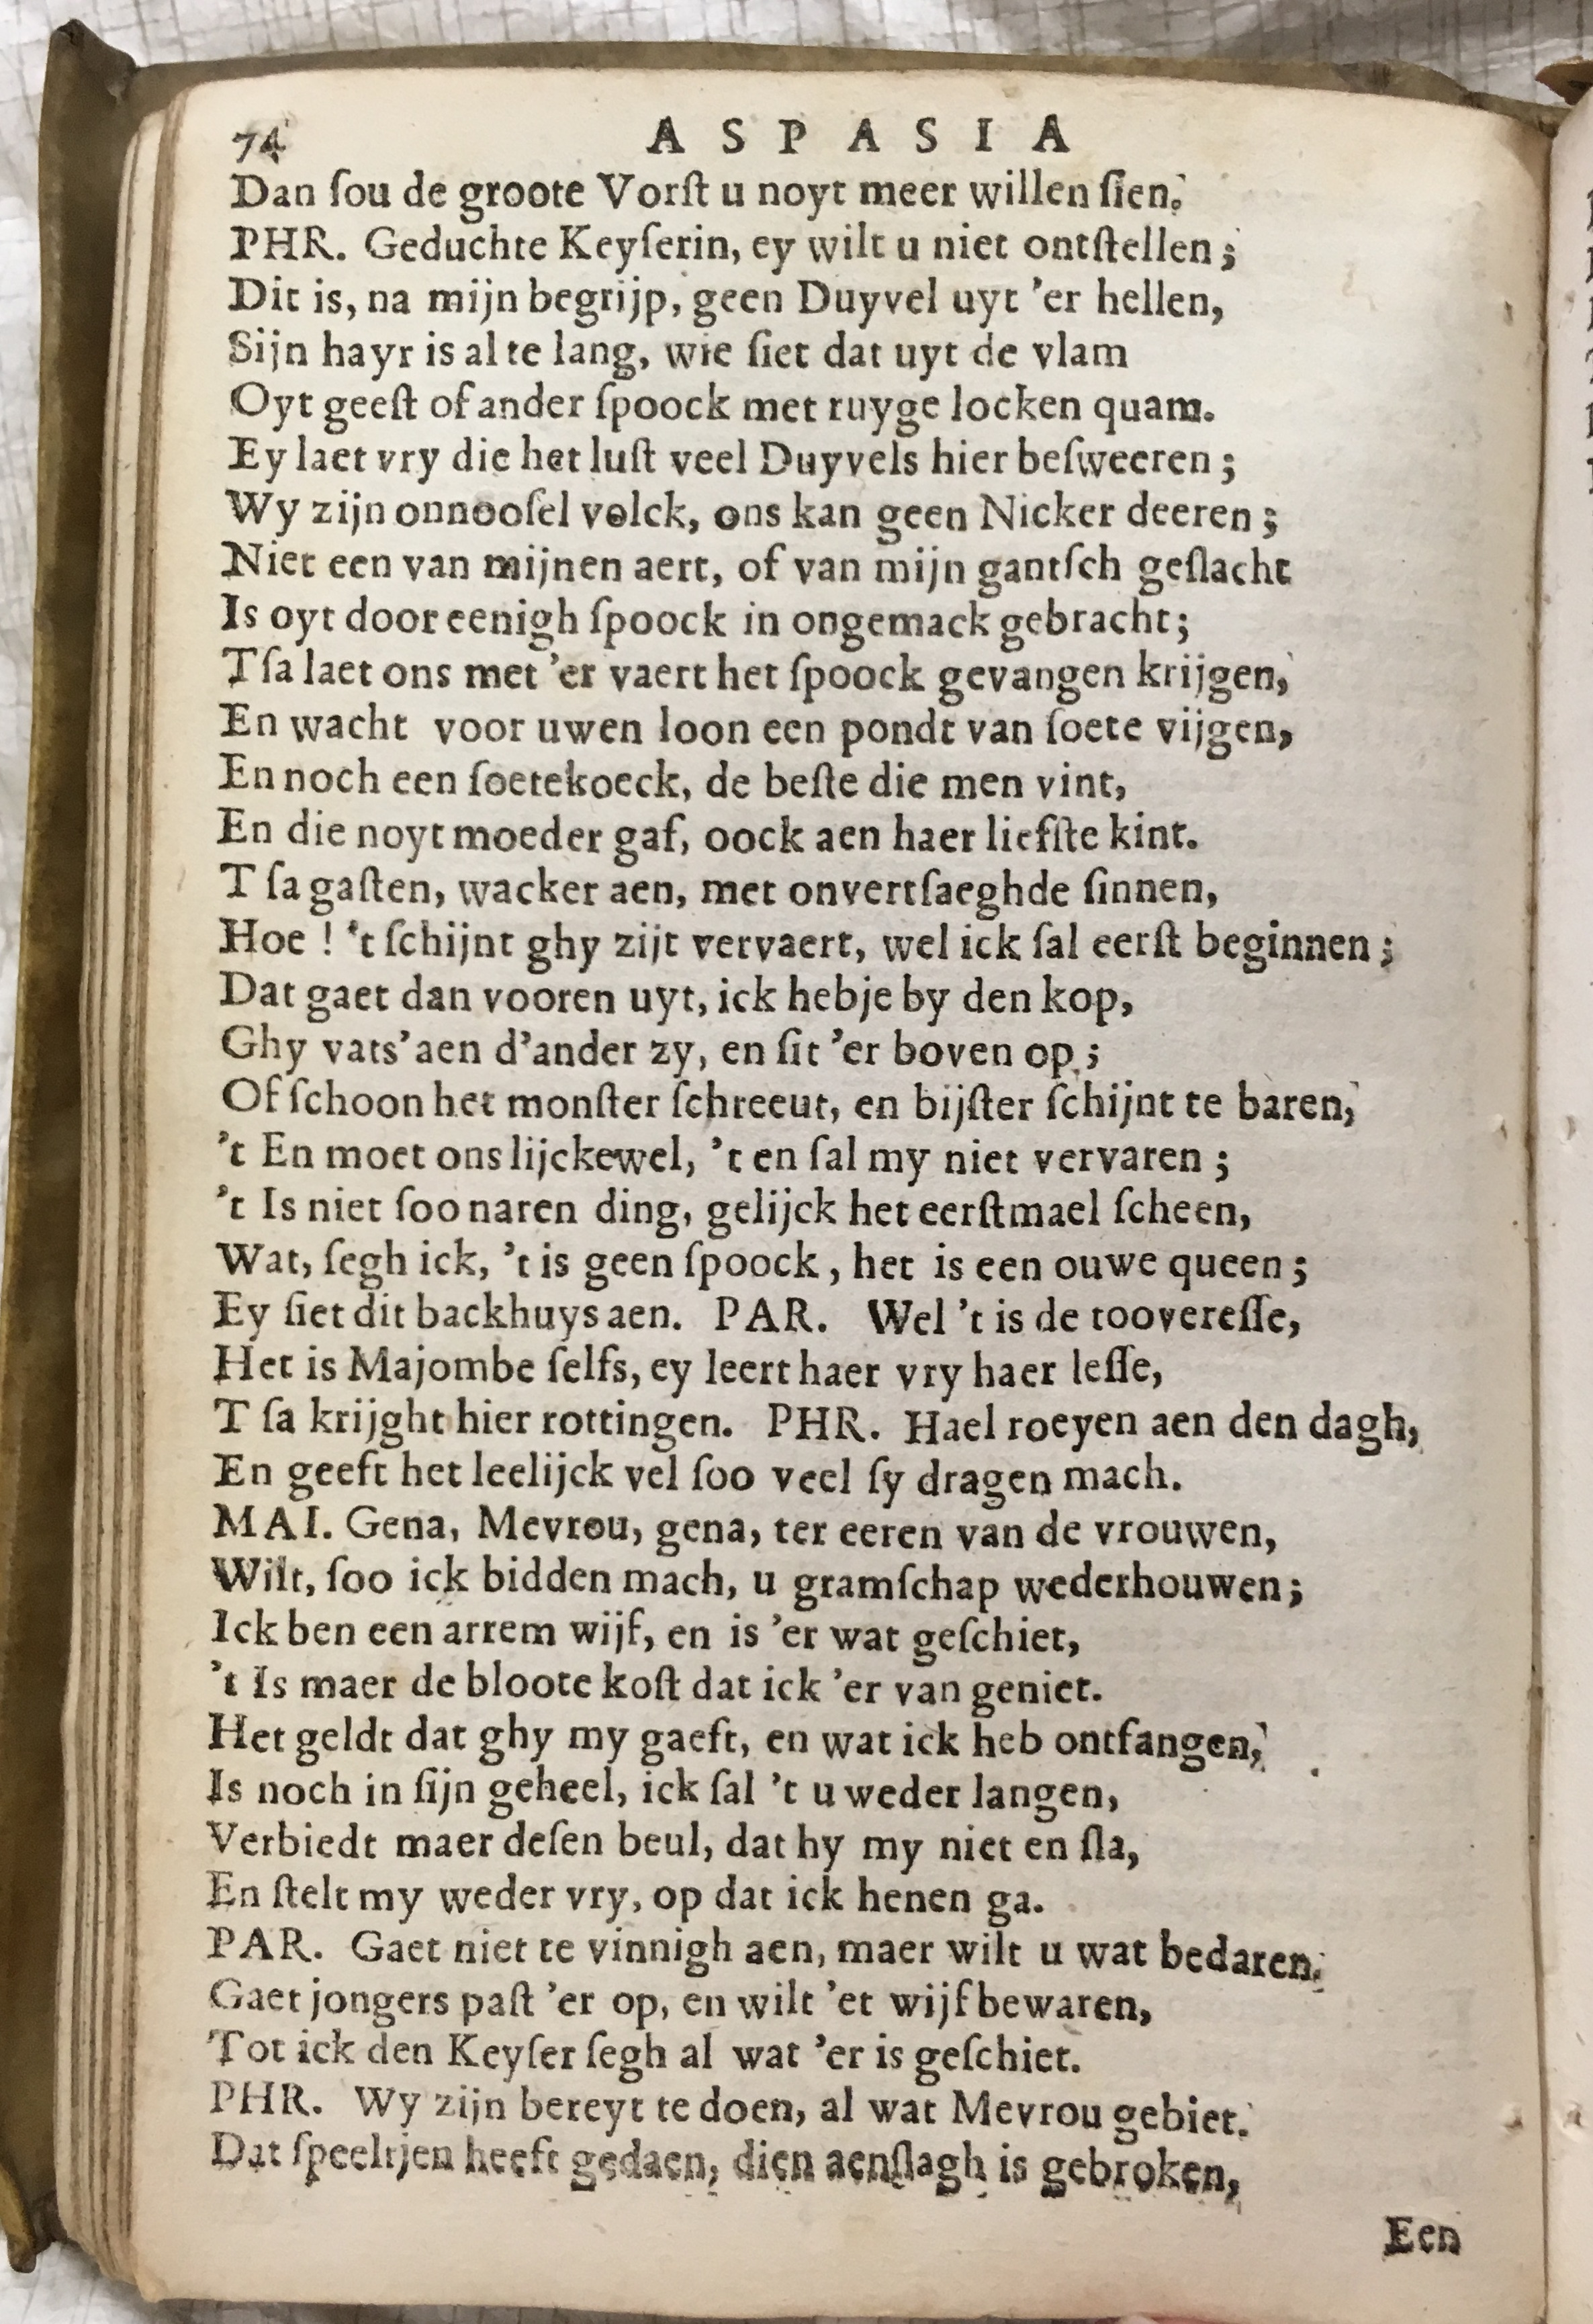 74 ASPASIA
Dan ſou de groote Vorſt u noyt meer willen ſien.
PHR. Geduchte Keyſerin, ey wilt u niet ontſtellen;
Dit is, na mijn begrijp, geen Duyvel uyt 'er hellen,
Sijn hayr is al te lang, wie ſiet dat uyt de vlam
Oyt geeſt of ander ſpoock met ruyge locken quam.
Ey laet vry die het luſt veel Duyvels hier beſweeren;
Wy zijn onnooſel volck, ons kan geen Nicker deeren;
Niet een van mijnen aert, of van mijn gantſch geſlacht
Is oyt door eenigh ſpoock in ongemack gebracht;
Tſa laet ons met 'er vaert het ſpoock gevangen krijgen,
En wacht voor uwen loon een pondt van ſoete vijgen,
En noch een ſoetekoeck, de beſte die men vint,
En die noyt moeder gaf, oock aen haer liefſte kint.
T ſa gaſten, wacker aen, met onvertſaeghde ſinnen,
Hoe! 't ſchijnt ghy zijt vervaert, wel ick ſal eerſt beginnen;
Dat gaet dan vooren uyt, ick hebje by den kop,
Ghy vats' aen d'ander zy, en ſit 'er boven op;
Of ſchoon het monſter ſchreeut, en bijſter ſchijnt te baren,
't En moet ons lijckewel, 't en ſal my niet vervaren;
't Is niet ſoo naren ding, gelijck het eerſtmael ſcheen,
Wat, ſegh ick, 't is geen ſpoock, het is een ouwe queen;
Ey ſiet dit backhuys aen. PAR. Wel 't is de toovereſſe,
Het is Majombe ſelfs, ey leert haer vry haer leſſe,
T ſa krijght hier rottingen. PHR. Hael roeyen aen den dagh,
En geeft het leelijck vel ſoo veel ſy dragen mach.
MAI. Gena, Mevrou, gena, ter eeren van de vrouwen,
Wilt, ſoo ick bidden mach, u gramſchap wederhouwen;
Ick ben een arrem wijf, en is 'er wat geſchiet,
't Is maer de bloote koſt dat ick 'er van geniet.
Het geldt dat ghy my gaeft, en wat ick heb ontfangen,
Is noch in ſijn geheel, ick ſal 't u weder langen,
Verbiedt maer deſen beul, dat hy my niet en ſla,
En ſtelt my weder vry, op dat ick henen ga.
PAR. Gaet niet te vinnigh aen, maer wilt u wat bedaren.
Gaet jongers paſt 'er op, en wilt 'et wijf bewaren,
Tot ick den Keyſer ſegh al wat 'er is geſchiet.
PHR. Wy zijn bereyt te doen, al wat Mevrou gebiet.
Dat ſpeeltjen heeft gedaen, dien aenſlagh is gebroken,
Een